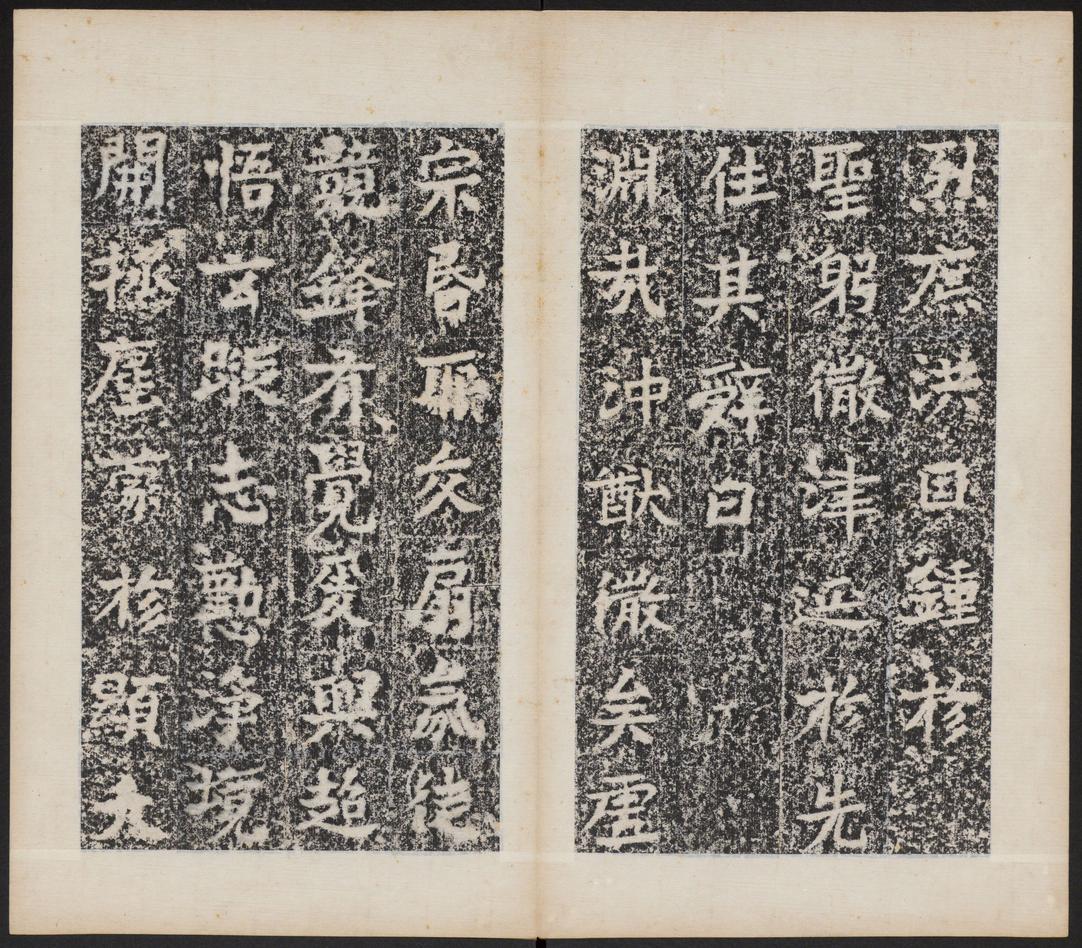 烈庶洪因鍾於
聖躬微津延於先
佳其辭曰
淵哉沖猷微矣虛
宗昏交扇氛徒
競鋒有覺爰興超
悟玄蹤志勤淨境
開拯塵蒙於顯大